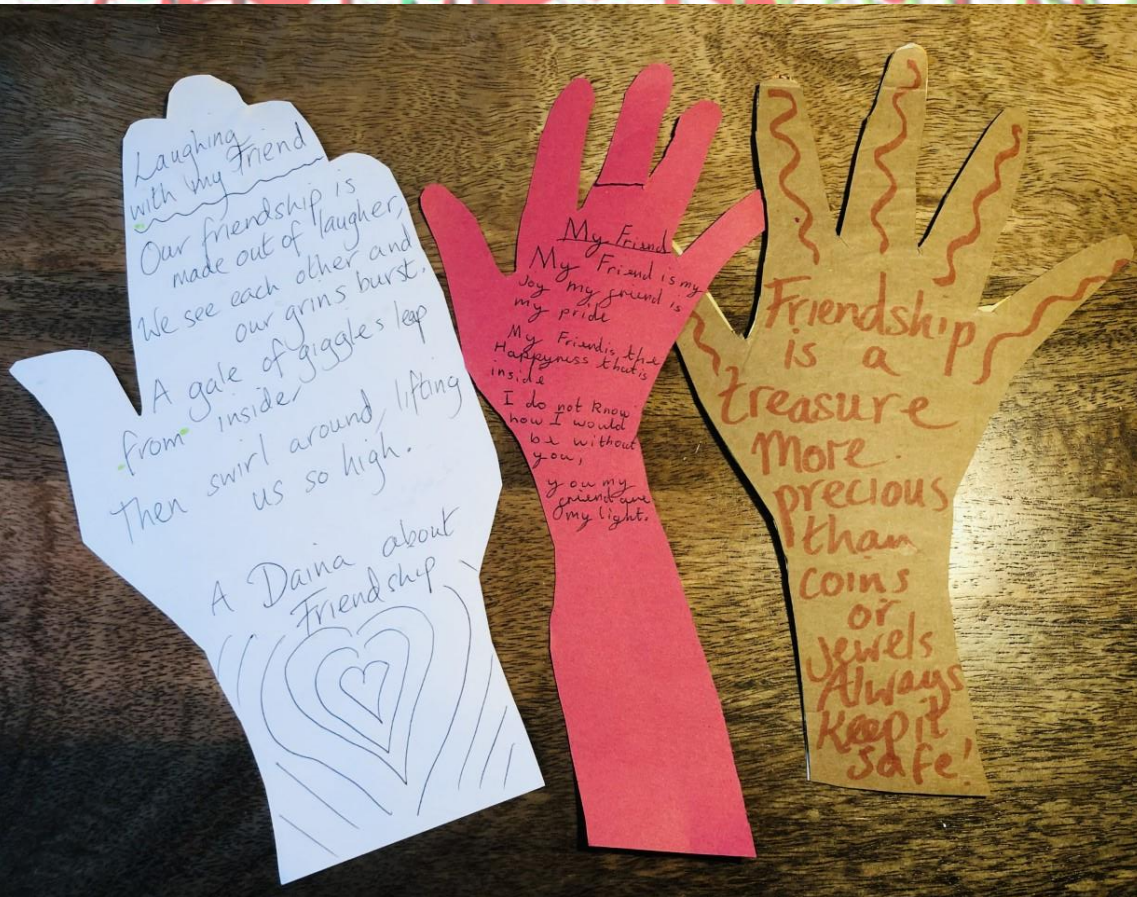 Laughing
with my Friend
Our friendship is
made out of laugher,
We see each other and
our grins burst.
A gale of giggles leap
from inside
Then swirl around, lifting
us so high.
A Daina about
Friendship
My Friend
My Friend is my
Joy my friend is
my pride
My Friend is the
Happyness that is
inside
I do not know
how I would
be without
you,
you my
friend are
my light.
Friendship
is a
treasure
More
precious
than
coins
or
jewels
Always
Keep it
safe!